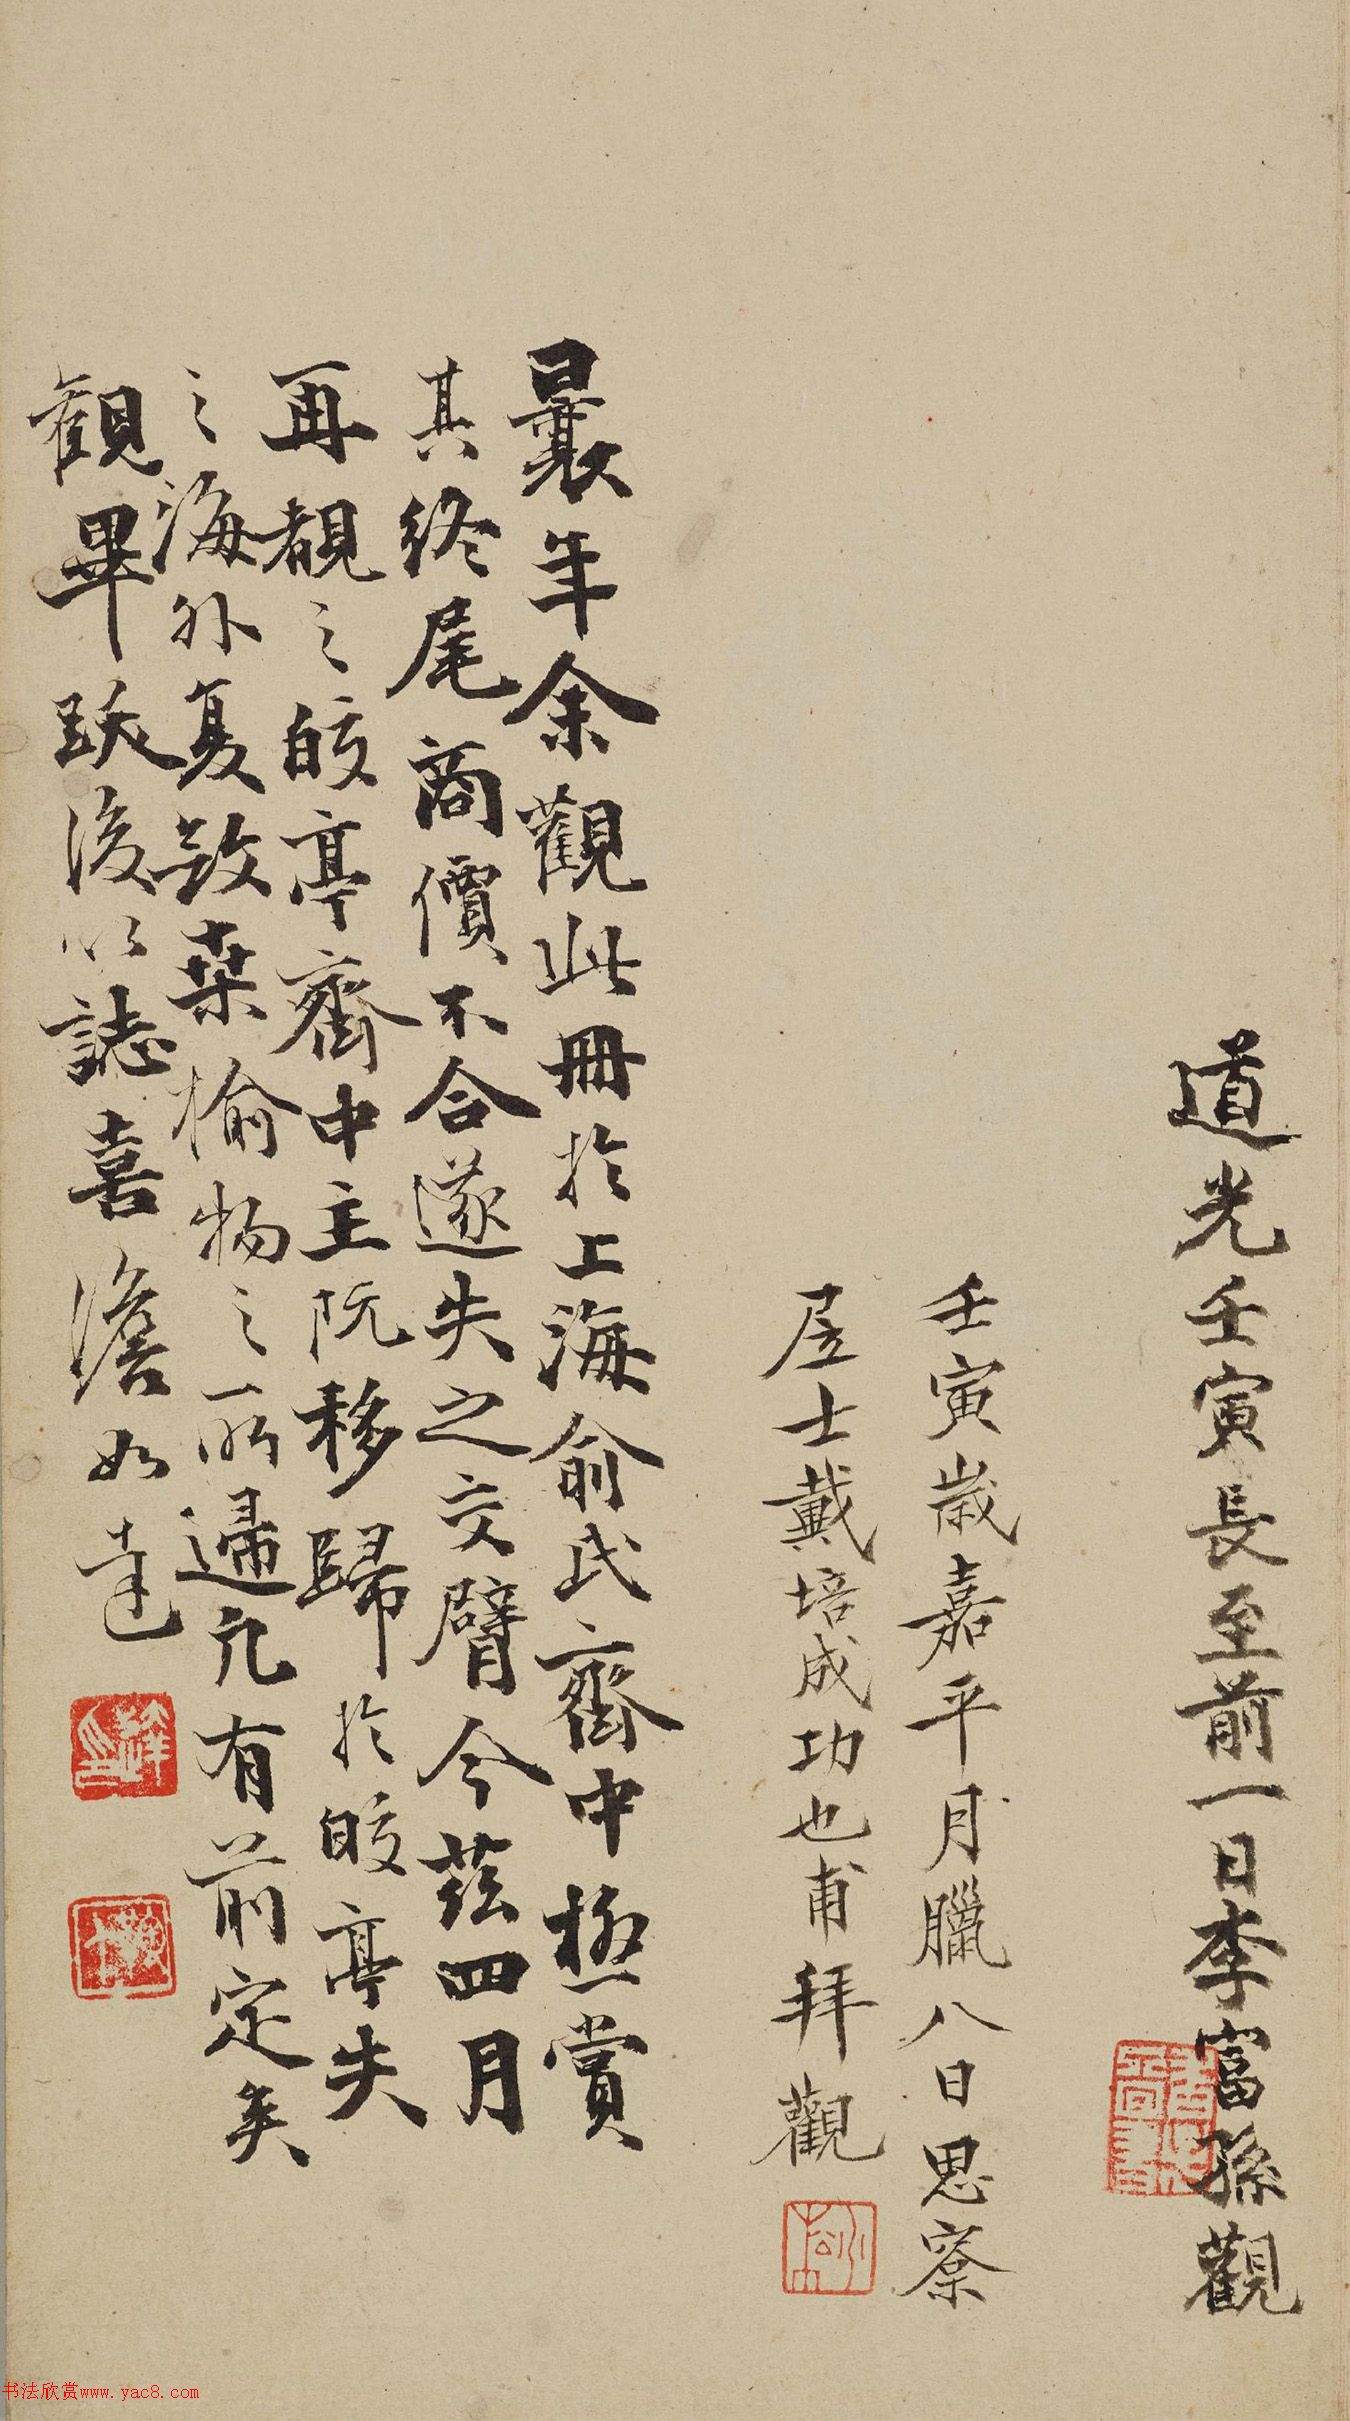 道光壬寅長至前一日李富孫觀
壬寅歲嘉平月臘八日思寮
居士戴培成功也甫拜觀
曩年余觀此冊於上海俞氏齋中極賞
其終尾商價不合遂失之交臂今茲四月
再覩之皎亭齋中主阮移歸於皎亭失
之海外夏致桑榆物之所歸冗有前定矣
観畢跋後以誌喜澹如達
书法欣赏www.yac8.com